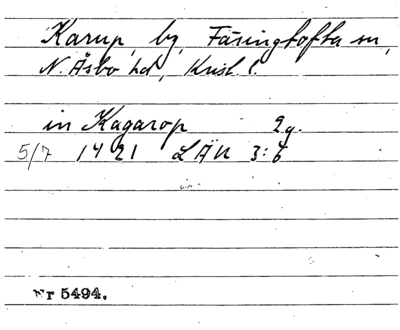 Karup, by, Färingtofta sn,
N. Åsbo hd, Krist. l.
in Kagarop 2 g.
5/7 1421 LÄU 3:6
Nr 5494.